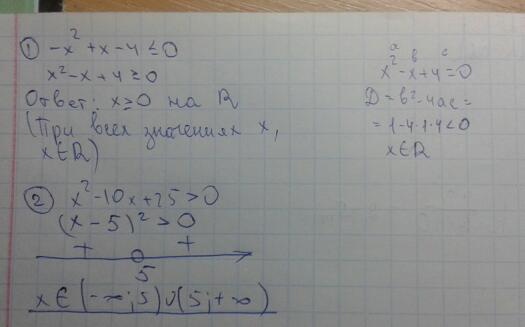 ① -x² + x - 4 ≤ 0
x² - x + 4 ≥ 0
Ответ: x ≥ 0 на R
(При всех значениях x,
x ∈ R)
a b c
x² - x + 4 = 0
D = b² - 4ac =
= 1 - 4·1·4 < 0
x ∈ R
② x² - 10x + 25 > 0
(x - 5)² > 0
+ +
5
x ∈ (-∞; 5) ∪ (5; +∞)